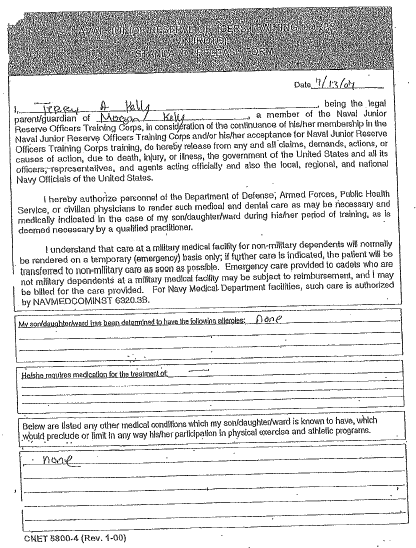 NAVAL JUNIOR RESERVE OFFICERS TRAINING CORPS
STANDARD RELEASE FORM
Date 7/13/04
I, Terry A Kelly, being the legal
parent/guardian of Morgan Kelly, a member of the Naval Junior
Reserve Officers Training Corps, in consideration of the continuance of his/her membership in the
Naval Junior Reserve Officers Training Corps and/or his/her acceptance for Naval Junior Reserve
Officers Training Corps training, do hereby release from any and all claims, demands, actions, or
causes of action, due to death, injury, or illness, the government of the United States and all its
officers, representatives, and agents acting officially and also the local, regional, and national
Navy Officials of the United States.
I hereby authorize personnel of the Department of Defense, Armed Forces, Public Health
Service, or civilian physicians to render such medical and dental care as may be necessary and
medically indicated in the case of my son/daughter/ward during his/her period of training, as is
deemed necessary by a qualified practitioner.
I understand that care at a military medical facility for non-military dependents will normally
be rendered on a temporary (emergency) basis only; if further care is indicated, the patient will be
transferred to non-military care as soon as possible. Emergency care provided to cadets who are
not military dependents at a military medical facility may be subject to reimbursement, and I may
be billed for the care provided. For Navy Medical Department facilities, such care is authorized
by NAVMEDCOMINST 6320.3B.
My son/daughter/ward has been determined to have the following allergies: none
He/she requires medication for the treatment of:
Below are listed any other medical conditions which my son/daughter/ward is known to have, which
would preclude or limit in any way his/her participation in physical exercise and athletic programs.
none
CNET 5800-4 (Rev. 1-00)